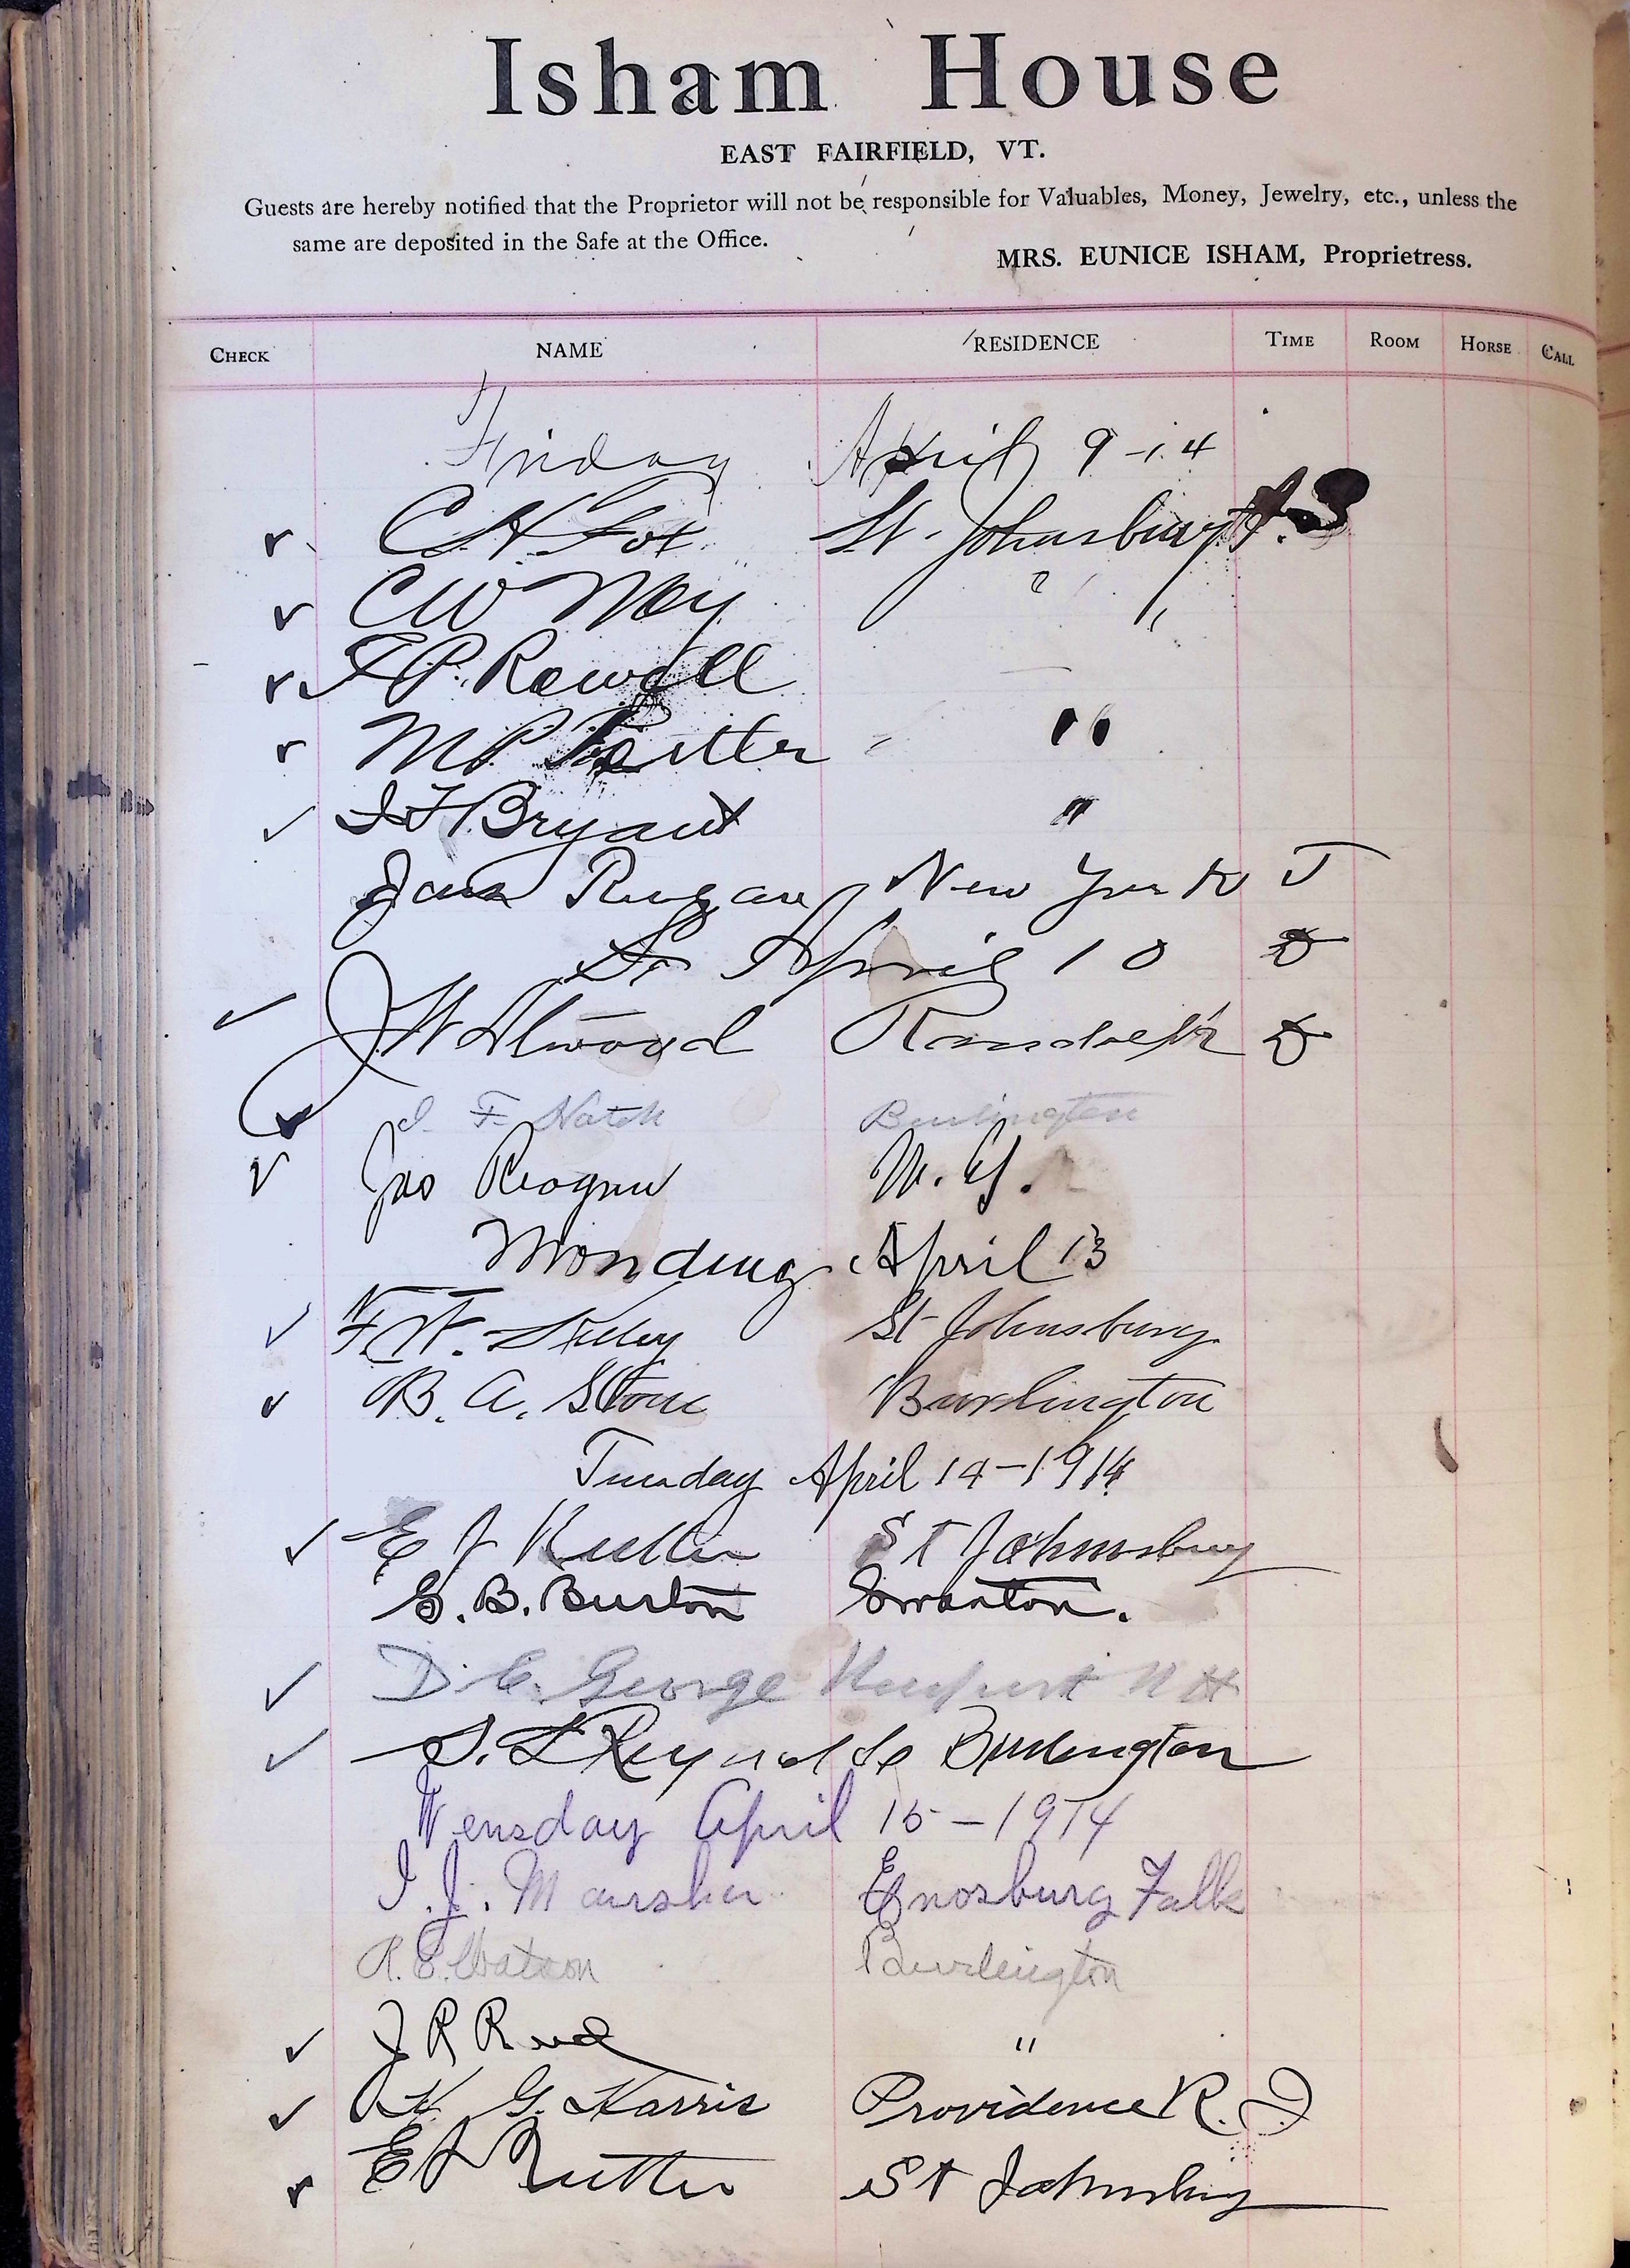 Isham House
EAST FAIRFIELD, VT.
Guests are hereby notified that the Proprietor will not be responsible for Valuables, Money, Jewelry, etc., unless the
same are deposited in the Safe at the Office.
MRS. EUNICE ISHAM, Proprietress.
CHECK NAME RESIDENCE TIME ROOM HORSE CALL
Friday April 9-14
C H Fox St. Johnsbury
C W " "
F P. Rowell
M P "
I F Bryant "
New York
April 10
J W Atwood Randolph
F. Burlington
Jas
Monday April 13
F. W. St Johnsbury
B. A. Stone Burlington
Tuesday April 14-1914
E J St Johnsbury
G. B. Burton Swanton.
D. C. George Newport N H
S. L Reynolds Burlington
Wensday April 15-1914
I. J. Enosburg Falls
R. E. Watson Burlington
J R "
H. G. Harris Providence R. I
E J St Johnsbury